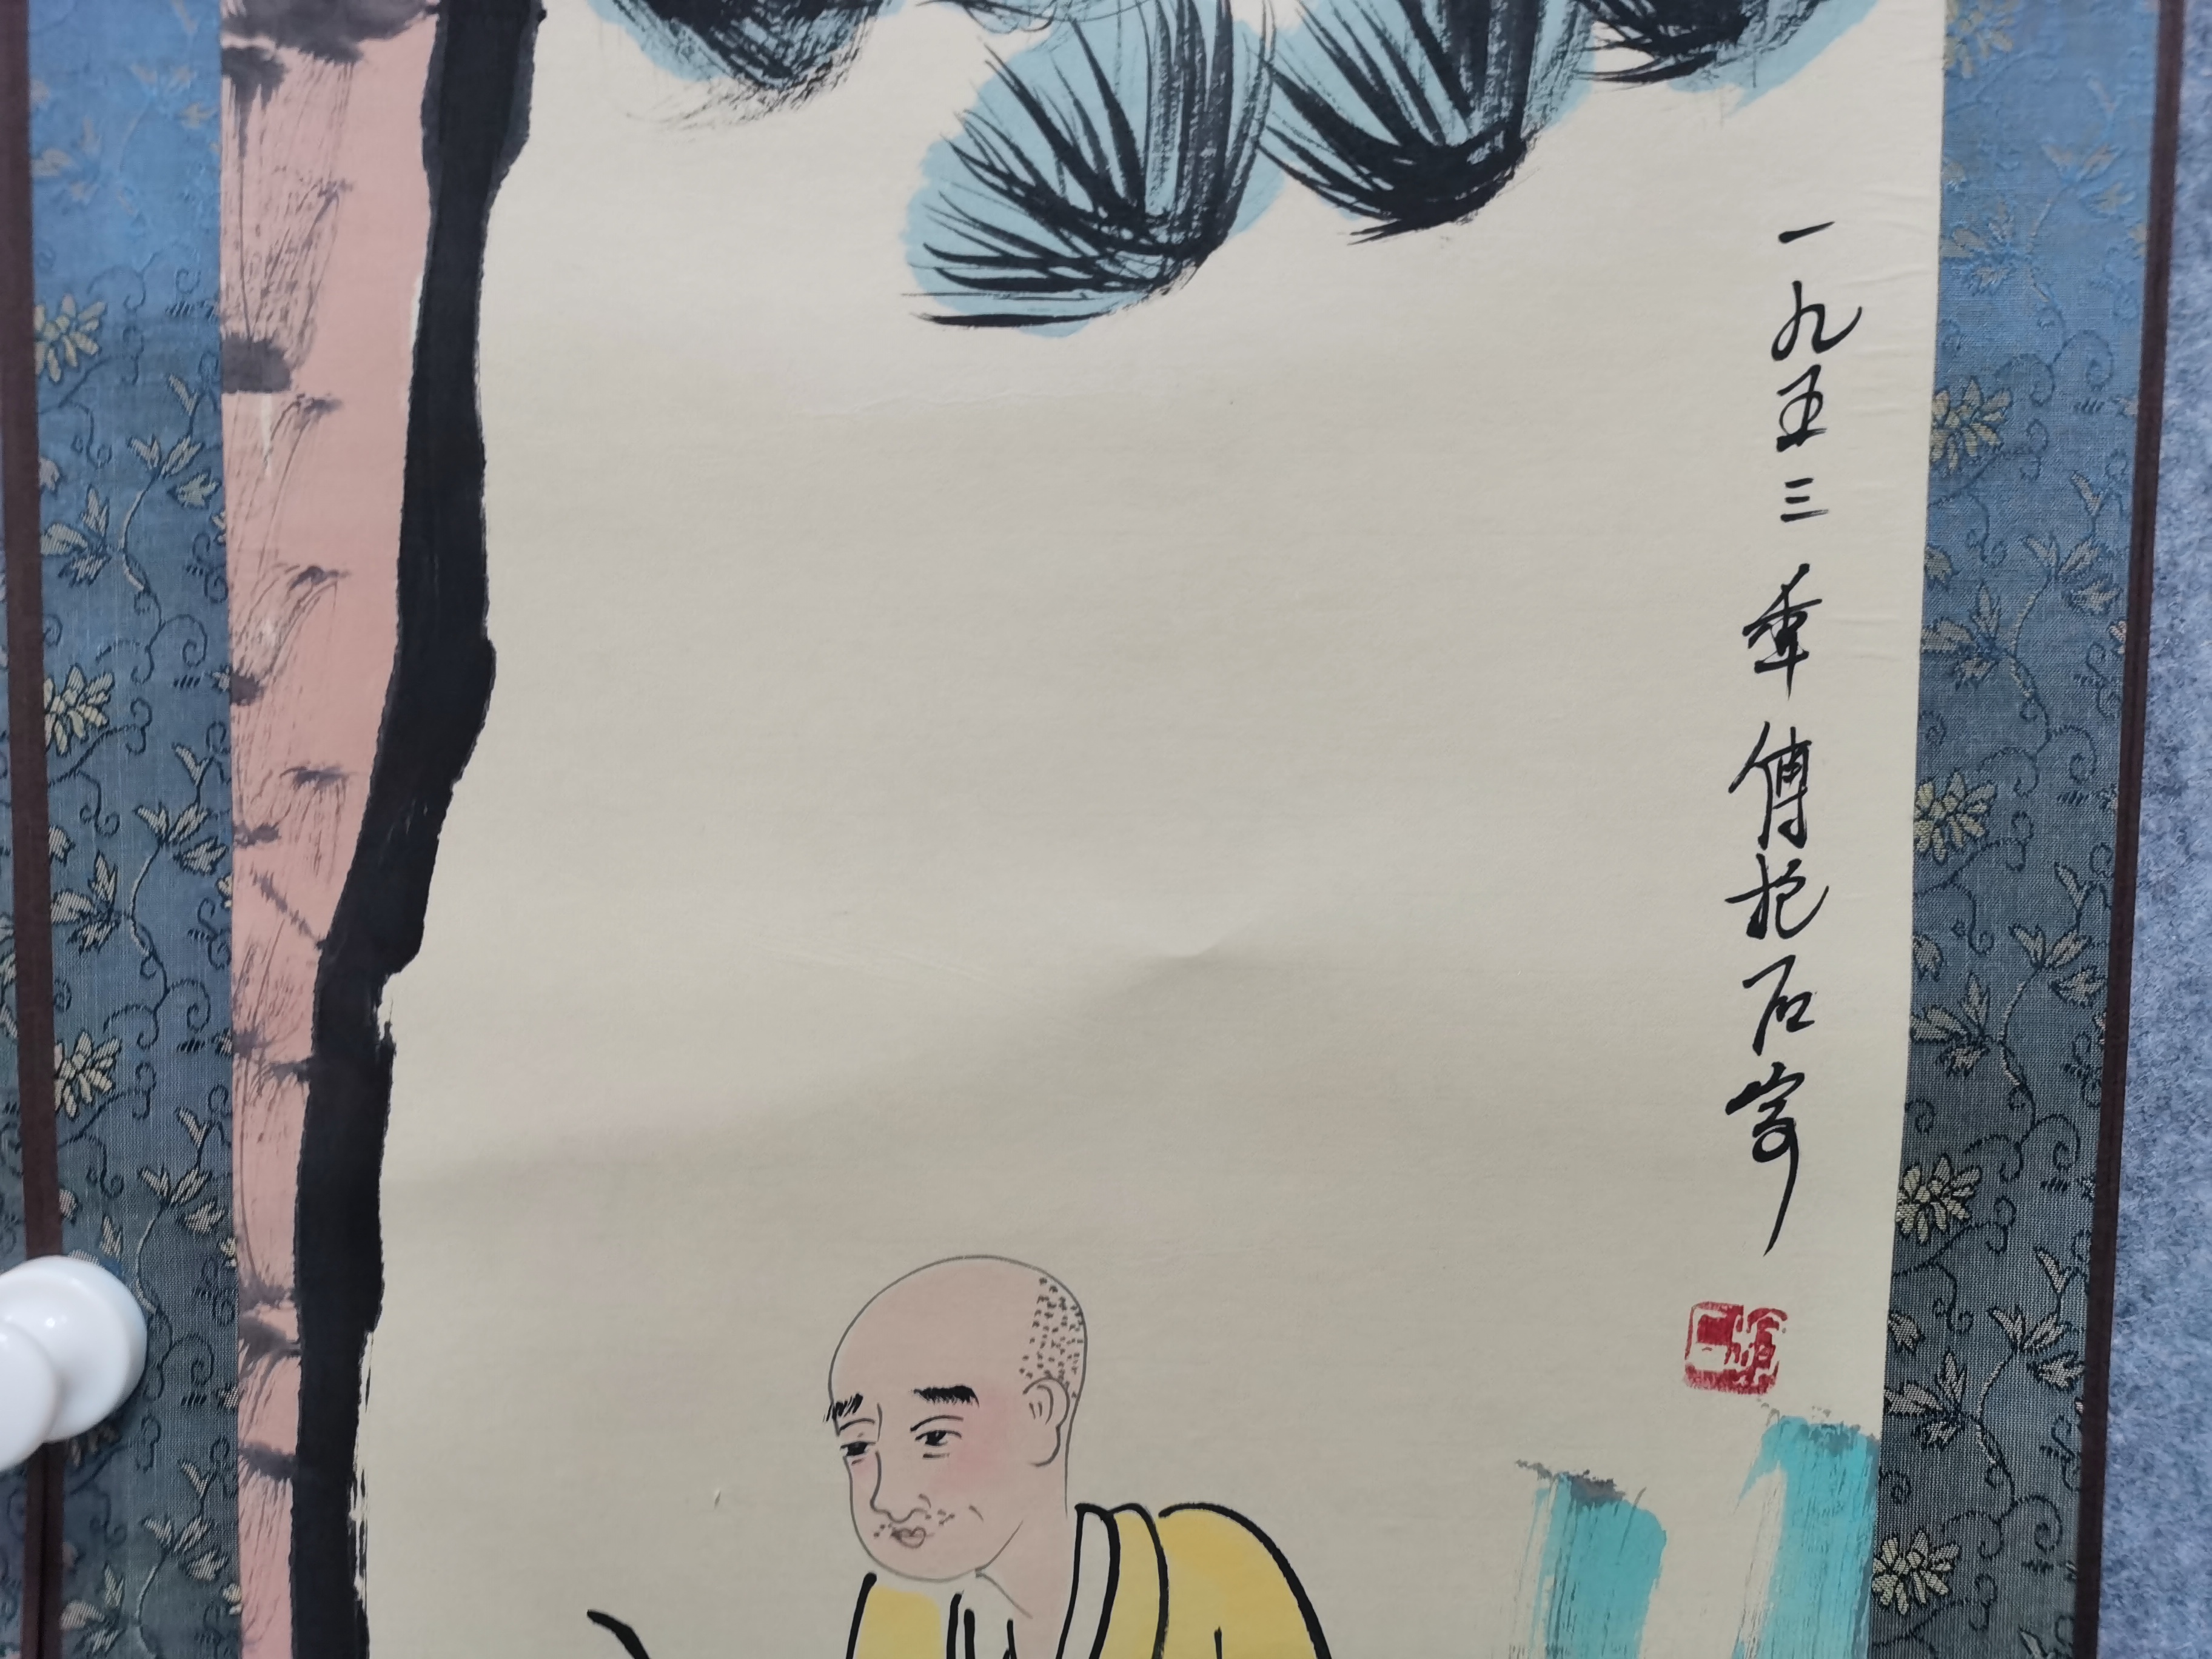 一九五三年傅抱石写